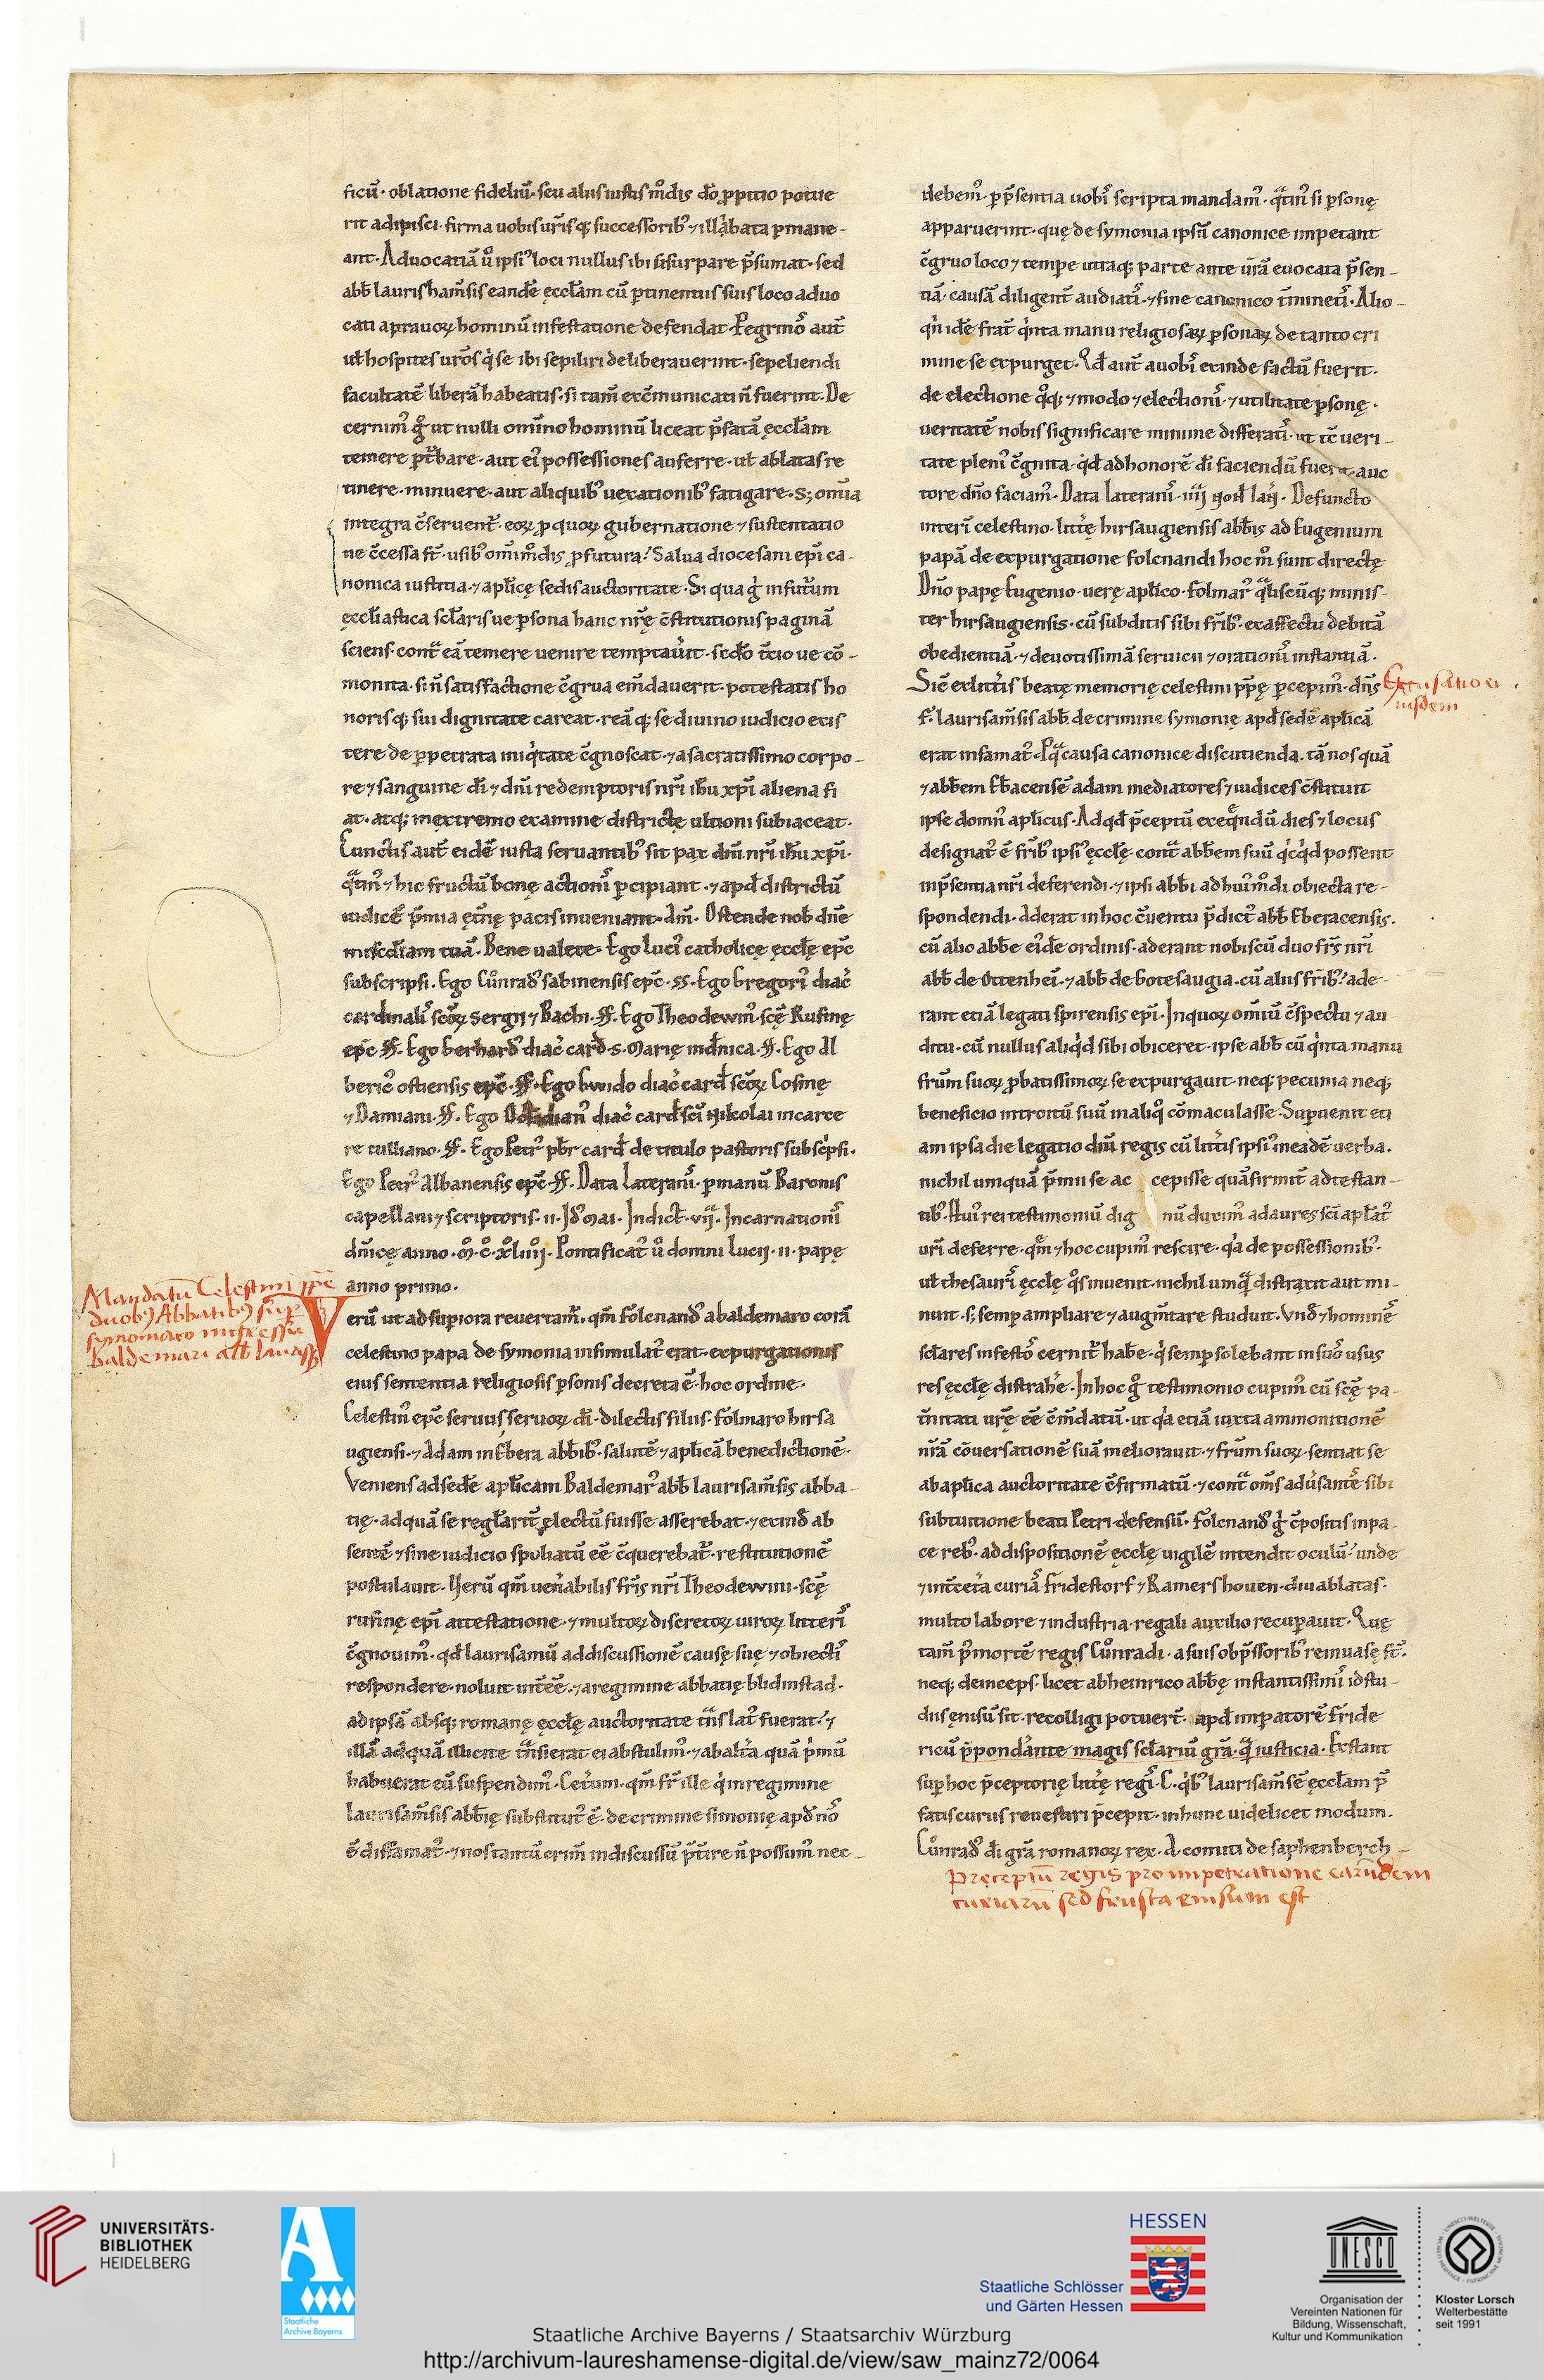 ficū· oblatione fideliū· seu aliis iustis m̄dis d̄o ꝓpitio potue
rit adipisci· firma uobis ur̄isq; successorib᾽ ⁊ illibata ꝑmane-
ant· Aduocatiā ů ipsi᾽ loci nullus ibi sisurpare p̄sumat· sed
abb̄ laurishām̄sis eandē ęccl̄am cū ꝑtinentiis suis loco aduo
cati a prauoꝝ hominū infestatione defendat· Peregrinos aut̄
ul̄ hospites uros q̇ se ibi sepiliri deliberauerint· sepeliendi
facultatē liberā habeatis· si tam̄ exc̄municati n̄ fuerint· De
cernim᾽ g̊ ut nulli omīno hominū liceat p̄fatā ęccl̄am
temere ꝑt̄bare· aut ei᾽ possessiones auferre· ul̄ ablatas re
tinere· minuere· aut aliquib᾽ uexationib᾽ fatigare· s; om̄ia
integra c̄seruent̄· eoꝝ ꝓ quoꝝ gubernatione ⁊ sustentatio
ne c̄cessa st̄· usib᾽ om̄im̄dis ꝓfutura· Salua diocesani ep̄i ca-
nonica iustitia· ⁊ apl̄icę sedis auctoritate· Si qua g̊ in futurum
ęccl̄iastica scl̄aris ue ꝑsona hanc nr̄ę c̄stitutionis paginā
sciens· cont̄ eā temere uenire temptauit· sedo t̄cio ue cō-
monita· si n̄ satisfactione c̄grua em̄dauerit· potestatis ho
norisq; sui dignitate careat· reāq; se diuino iudicio exis
tere de ꝑpetrata iniq̇tate c̄gnoscat· ⁊ a sacratissimo corpo-
re ⁊ sanguine d̄i ⁊ dn̄i redemptoris nr̄i ih̄u xp̄i aliena fi
at· atq; in extremo examine districtę ultioni subiaceat·
Cunctis aut̄ eidē iusta seruantib᾽ sit pax dn̄i nr̄i ih̄u xp̄i·
q̄tin᾽ ⁊ hic fructū bonę actioni᾽ ꝑcipiant· ⁊ apd̄ districtū
iudicē p̄mia ęt̄nę pacis inueniant· Am̄· Ostende nob̄ dn̄e
misc̄diam tuā· Bene ualete· Ego Luci᾽ catholicę ęccl̄ę ep̄c
subscripsi· Ego Cůnrad᾽ sabinensis ep̄c· ss· Ego Gregori᾽ diac᾽
cardinali᾽ sc̄oꝝ Sergii ⁊ Bachi· ss· Ego Theodewin᾽ sc̄ę Rufinę
ep̄c ss· Ego Gerhard᾽ diac᾽ card̄· S· Marię in d̄nica· ss· Ego Al
beric᾽ ostiensis ep̄c· ss· Ego Gwido diac᾽ card̄ sc̄oꝝ Cosmę
⁊ Damiani· ss· Ego Octauian᾽ diac᾽ card̄ sc̄i Nikolai in carce
re tulliano· ss· Ego Petr᾽ pb̄r card̄ de titulo pastoris subscp̄si·
Ego Petr᾽ Albanensis ep̄c· ss· Data Laterani᾽· ꝑ manū Baronis
capellani ⁊ scriptoris· ii· Id᾽ mai· Indict̄· vij· Incarnationi᾽
dn̄icę anno· m̊· c̊· xl̊iiij· Pontificat᾽ ů domni Lucij· ii· papę
anno primo·
Mandatū Celestini ppe
duob᾽ Abbatib᾽ sup
symoniaco ingressu
baldemari abb̄ laurīss
Verū ut ad superiora reuertam᾽· qm̄ folcnand᾽ a baldemaro corā
celestino papa de symonia insimulat᾽ erat· expurgationis
eius sententia religiosis ꝑsonis decreta ē· hoc ordine·
Celestin᾽ ep̄c seruus seruoꝝ d̄i· dilectis filiis· folmaro hirsa
ugiensi· ⁊ Adam in Ebera abb̄ib᾽· salutē ⁊ apl̄icā benedictionē·
Veniens ad sedē apl̄icam Baldemar᾽ abb̄ laurisam̄sis abba-
tię· ad quā se regl̄arit̄ electū fuisse asserebat· ⁊ exind̄ ab
sentē ⁊ sine iudicio spoliatū eē c̄querebat᾽· restitutionē
postulauit· Uerū qm̄ uen̄abilis fr̄is nr̄i Theodewini· sc̄ę
rufinę ep̄i attestatione· ⁊ multoꝝ discretoꝝ uiroꝝ litteri᾽
c̄gnouim᾽· qd̄ laurisamū ad discussionē causę suę ⁊ obiecti᾽
respondere· noluit int̄eē· ⁊ a regimine abbatię blidinstad·
ad ipsā absq; romanę ęccl̄ę auctoritate t̄ns lat᾽ fuerat· ⁊
illā ad quā illicite t̄nsierat ei abstulim᾽· ⁊ ab alt̄a quā p̄mū
habuerat eū suspendim᾽· Ceterum· qm̄ fr̄ ille q̇ in regimine
laurisam̄sis abb̄ię substitut᾽ ē· de crimine simonię apd̄ nos
ē diffamat᾽· ⁊ nos tantū crim̄ indiscussū p̄t̄ire n̄ possum᾽ nec-
debem᾽· ꝑ p̄sentia uobis scripta mandam᾽· q̄tin᾽ si ꝑsonę
apparuerint· quę de symonia ipsū canonice impetant
c̄gruo loco ⁊ tempore utraq; parte ante ur̄ā euocata p̄sen-
tiā· causā diligent̄ audiati᾽· ⁊ fine canonico t̄mineti᾽· Alio-
q̇n idē frat̄ q̇nta manu religiosaꝝ ꝑsonaꝝ de tanto cri
mine se expurget· Qd̄ aut̄ a uobis exinde factū fuerit·
de electione q̊q; ⁊ modo ⁊ electioni᾽ ⁊ utilitate ꝑsonę·
ueritatē nobis significare minime differati᾽· ut t̄c ueri-
tate pleni᾽ c̄gnita· qd̄ ad honorē d̄i faciendū fuerit· auc
tore dn̄o faciam᾽· Data Laterani᾽· iiij non̄ Ian̄· Defuncto
interī celestino· litt̄ę hirsaugiensis abb̄is ad Eugenium
papā de expurgatione folcnandi hoc m̊ sunt directę
Dn̄o papę Eugenio· uerę apl̄ico· folmar᾽ q̄liscūq; minis-
ter hirsaugiensis· cū subditis sibi fr̄ib᾽· ex affectu debitā
obedientiā· ⁊ deuotissimā seruicii ⁊ orationi᾽ instantiā·
Excusatio ei
usdem
Sic̄ ex litt̄is beatę memorię celestini pp̄ę ꝑcepim᾽· dn̄s
f· laurisam̄sis abb̄· de crimine symonię apd̄ sedē apl̄icā
erat infamat᾽· Pq̄ causa canonice discutienda· tā nos quā
⁊ abb̄em Ebacensē adam mediatores ⁊ iudices c̄stituit
ipse domn᾽ apl̄icus· Ad qd̄ p̄ceptū exeq̄ndū dies ⁊ locus
designat᾽ ē fr̄ib᾽ ipsi᾽ ęccl̄ę· cont̄ abb̄em suū q̇cq̇d possent
in p̄sentia nr̄i deferendi· ⁊ ipsi abb̄i ad hui᾽m̄di obiecta re-
spondendi· Aderat in hoc c̄uentu p̄dict᾽ abb̄ Eberacensis·
cū alio abb̄e ei᾽dē ordinis· aderant nobiscū duo fr̄s nr̄i
abb̄ de Ottenheī· ⁊ abb̄ de botesaugia· cū aliis fr̄ib᾽· ade-
rant etiā legati spirensis ep̄i· In quoꝝ om̄iū c̄spectu ⁊ au-
ditu· cū nullus aliq̇d sibi obiceret· ipse abb̄ cū q̇nta manu
fr̄um suoꝝ ꝓbatissimoꝝ se expurgauit· neq; pecunia neq;
beneficio introitū suū in aliq̊ cōmaculasse· Supuenit eti
am ipsa die legatio dn̄i regis cū litt̄is ipsi᾽ in eadē uerba·
nichil umquā p̄mii se ac cepisse quā firmit̄ adtestan-
tib᾽· Hui᾽ rei testimoniū dig nū duxim᾽ ad aures sc̄i apl̄at᾽
uri deferre· qm̄ ⁊ hoc cupim᾽ rescire· q̇a de possessionib᾽·
ul̄ thesauri᾽ ęccl̄ę q̊s inuenit· nichil umq̄ distraxit aut mi-
nuit· s; semp ampliare ⁊ augm̄tare studuit· Vnd̄ ⁊ hominē
scl̄ares infestos cernit᾽ habe· q̇ semp solebant in suos usus
res ęccl̄ę distrahe· In hoc g̊ testimonio cupim᾽ eū sc̄ę pa-
t̄nitati ur̄ę eē c̄m̄datū· ut q̇a etiā iuxta ammonitionē
nr̄ā cōuersationē suā meliorauit· ⁊ fr̄um suoꝝ· sentiat se
ab apl̄ica auctoritate c̄firmatū· ⁊ cont̄ om̄s adu᾽santes sibi
sub tuitione beati Petri defensū· folcnand᾽ g̊ c̄positis in pa-
ce reb᾽· ad dispositionē ęccl̄ę uigilē intendit oculū· unde
⁊ int̄ cet̄a curiā fridestorf ⁊ Ramershouen· diu ablatas·
multo labore ⁊ industria· regali auxilio recuperauit· Quę
tam̄ p᾽ mortē regis Cůnradi· a suis obp̄ssorib᾽ reinuasę st̄·
neq; deinceps· licet ab heinrico abb̄e instantissimi᾽ id stu-
diis enisū sit· recolligi potuer̄t· apd̄ imperatorē fride
ricū p̄pondante magis scl̄ariū gr̄a· q̄ iusticia· Extant
super hoc p̄ceptorię litt̄ę regi᾽· C· q̇b᾽ laurisam̄sē ęccl̄am p̄
fatis curiis reuestiri p̄cepit· in hunc uidelicet modum·
Cůnrad᾽ d̄i gr̄a romanoꝝ rex· A· comiti de saphenberch-
Preceptū regis pro impetratione earūdem
curiarū sed frusta emsum est
UNIVERSITÄTS-
BIBLIOTHEK
HEIDELBERG
Staatliche
Archive Bayerns
HESSEN
Staatliche Schlösser
und Gärten Hessen
UNESCO
Organisation der
Vereinten Nationen für
Bildung, Wissenschaft,
Kultur und Kommunikation
Kloster Lorsch
Welterbestätte
seit 1991
Staatliche Archive Bayerns / Staatsarchiv Würzburg
http://archivum-laureshamense-digital.de/view/saw_mainz72/0064